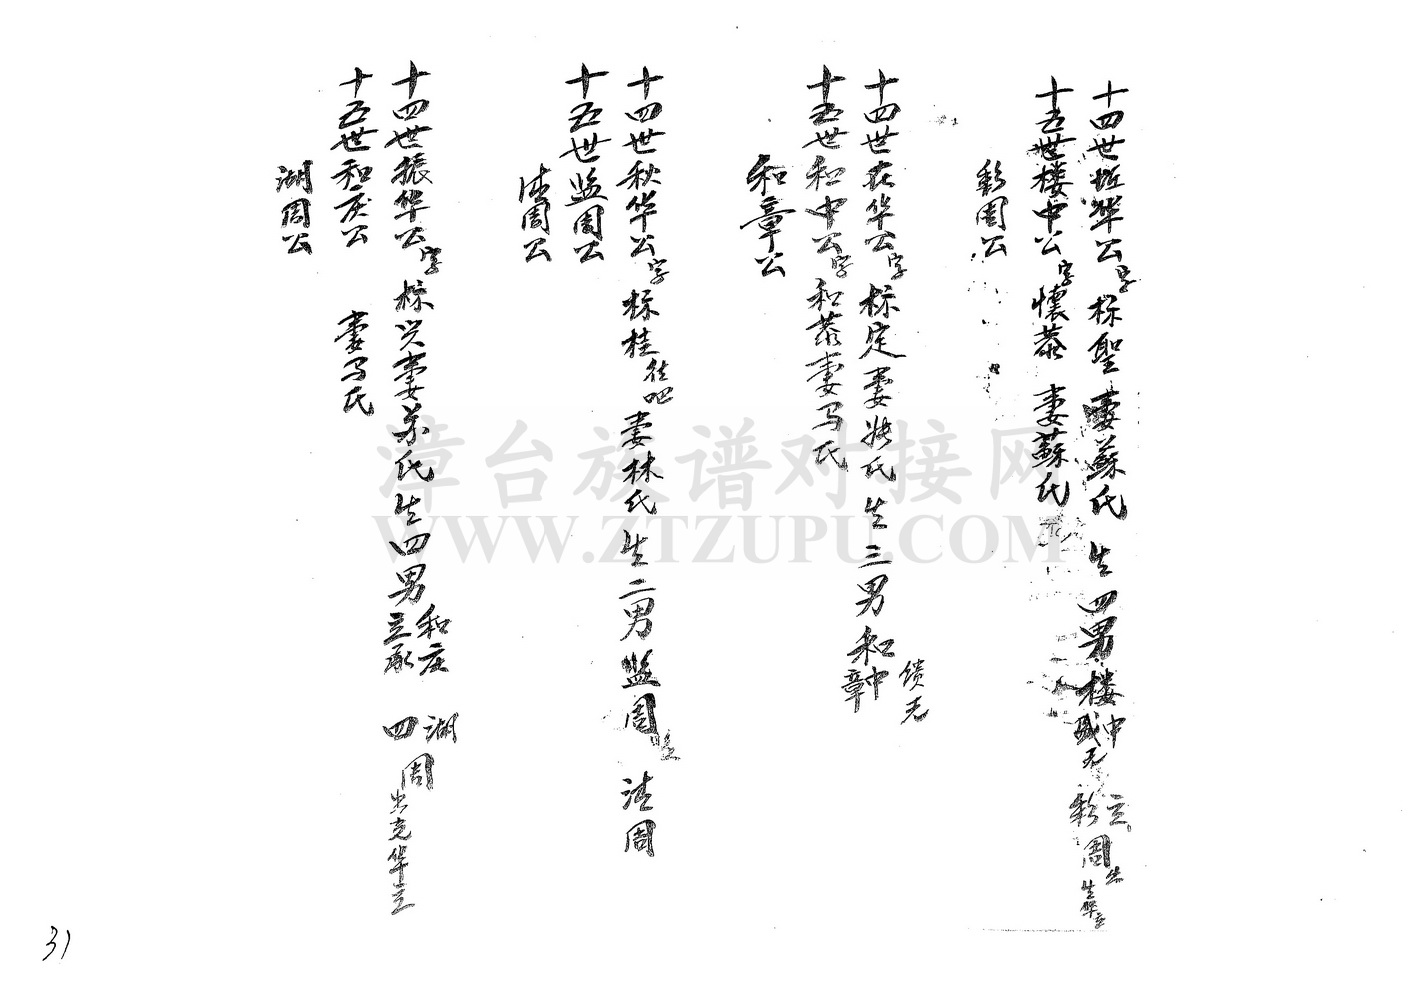 十四世垢华公字标聖妻蘇氏生四男楼中 盛无 立 彩周 生华立
十五世楼中公字懷恭妻蘇氏
彩周公
十四世在华公字标定妻 氏生三男和中 章
十五世和中公字和恭妻马氏
和章公
十四世秋华公字标桂 往吧 妻林氏生二男监周 法周
十五世监周公
法周公
十四世振华公字标兴妻 氏生四男和庆 立承 湖周 四 出克华立
十五世和庆公 妻马氏
湖周公
漳台族谱对接网
WWW.ZTZUPU.COM
31